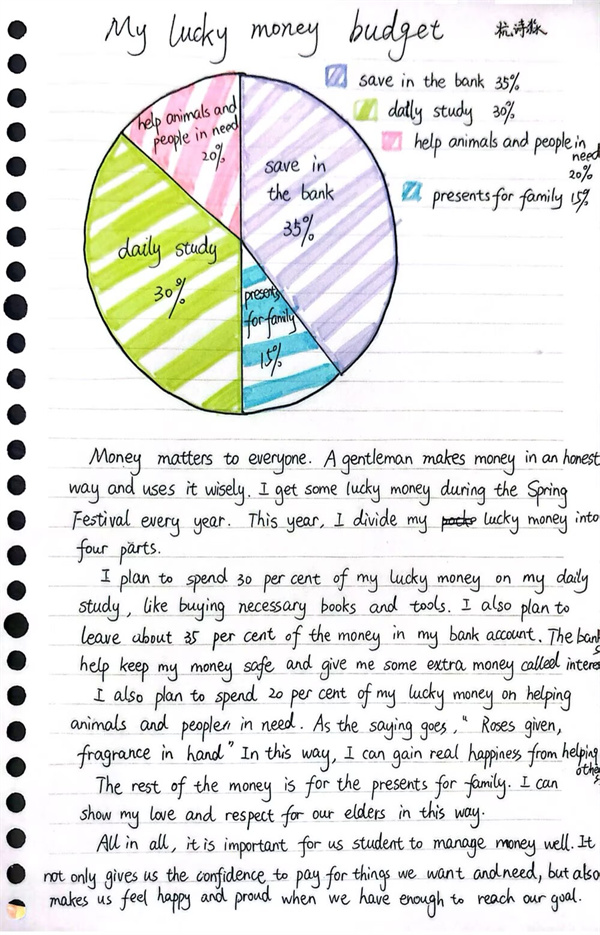 My lucky money budget
杭诗淼
save in the bank 35%
daily study 30%
help animals and people in need 20%
presents for family 15%
help animals and people in need 20%
save in the bank 35%
daily study 30%
presents for family 15%
Money matters to everyone. A gentleman makes money in an honest
way and uses it wisely. I get some lucky money during the Spring
Festival every year. This year, I divide my lucky money into
four parts.
I plan to spend 30 per cent of my lucky money on my daily
study, like buying necessary books and tools. I also plan to
leave about 35 per cent of the money in my bank account. The bank
help keep my money safe and give me some extra money called interes
I also plan to spend 20 per cent of my lucky money on helping
animals and people in need. As the saying goes, " Roses given,
fragrance in hand" In this way, I can gain real happiness from helping
The rest of the money is for the presents for family. I can
show my love and respect for our elders in this way.
All in all, it is important for us student to manage money well. It
not only gives us the confidence to pay for things we want and need, but also
makes us feel happy and proud when we have enough to reach our goal.